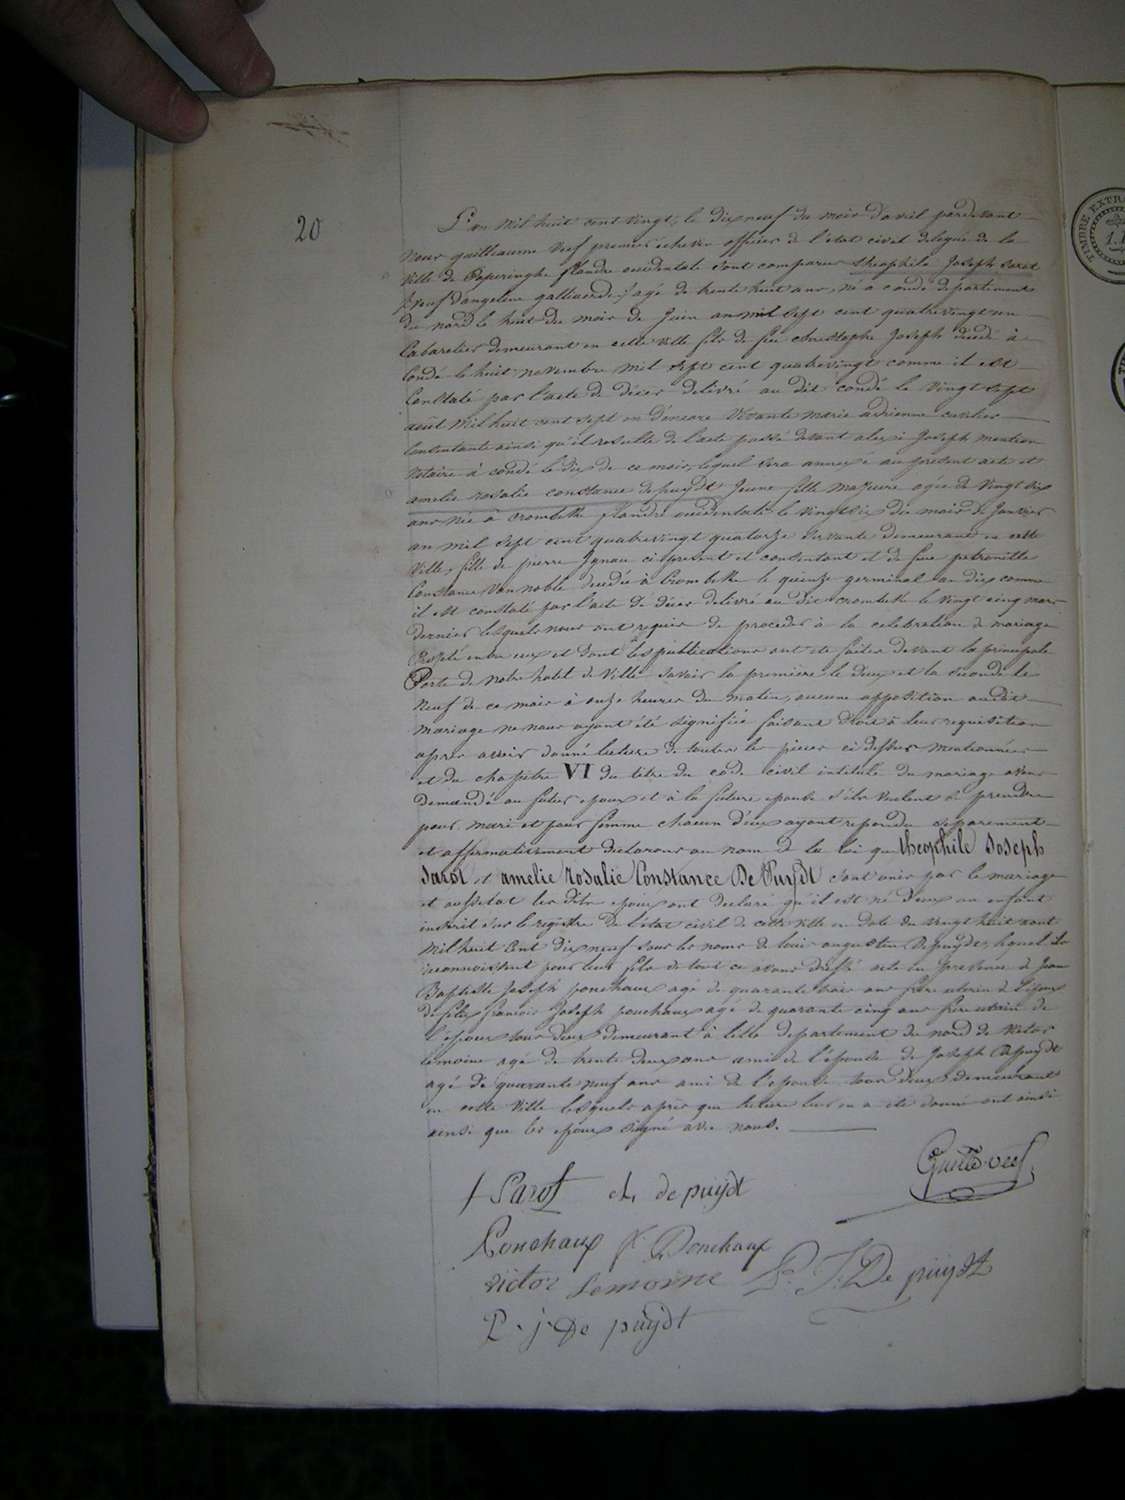 20
L'an mil huit cent vingt, le dix neuf du mois d'avril pardevant
Nous guillaume veef premier échevin officier de l'état civil delegué de la
ville de Poperinghe flandre occidentale sont comparus theophile Joseph Sarot
veuf d'angeline agé de trente huit ans, né à condé departement
du nord le huit du mois de Juin an mil sept cent quatrevingt un
Cabaretier demeurant en cette ville fils de feu christophe Joseph decedé à
Condé le huit novembre mil sept cent quatrevingt comme il est
Constaté par l'acte de décès delivré au dit condé le vingt sept
août mil huit cent sept en d'encore vivante marie adrienne
Consentante ainsi qu'il resulte de l'acte passé devant alexis Joseph
Notaire à condé le dix de ce mois, lequel sera annexé au present acte et
amelie rosalie constance de puydt Jeune fille majeure agée de vingt six
ans née à Crombeke flandre occidentale le vingt six du mois de Janvier
an mil sept cent quatrevingt quatorze servante demeurant en cette
ville, fille de pierre Ignace ci present et consentant et de feue petronille
Constance Van noble decedée à Crombeke le quinze germinal an dix comme
il est constaté par l'acte de décès delivré au dit crombeke le vingt cinq mars
dernier lesquels nous ont requis de proceder à la celebration de mariage
Projeté entre eux et dont les publications ont été faites devant la principale
Porte de notre hotel de ville savoir la premiere le deux et la seconde le
Neuf de ce mois à onze heures du matin, aucune opposition au dit
mariage ne nous ayant été signifiée faisant droit à leur requisition
après avoir donné lecture de toutes les pieces ci dessus mentionnées
et du chapitre VI du titre du code civil intitulé du mariage avons
demandé au futur epoux et à la future epouse s'ils veulent se prendre
pour mari et pour femme chacun d'eux ayant repondu separement
et affirmativement declarons au nom de la loi que theophile Joseph
Sarot et amelie Rosalie Constance De Puydt sont unis par le mariage
et aussitot les dits epoux ont declaré qu'il est né d'eux un enfant
inscrit sur le registre de l'état civil de cette ville en date du vingt huit aout
Mil huit Cent dix neuf sous les noms de louis augustin Depuydt, lequel ils
reconnoissent pour leur fils de tout ce avons dressé acte en presence de Jean
Baptiste Joseph ponchaux agé de quarante trois ans frere uterin de l'epoux
de felix francois Joseph ponchaux agé de quarante cinq ans frere uterin de
l'epoux tous deux demeurant à lille departement du nord de victor
Lemoine agé de trente deux ans ami de l'epouse de Joseph Depuydt
agé de quarante neuf ans ami de l'epouse tous deux demeurant
en cette ville lesquels après que lecture leur en a été donné ont ainsi
ainsi que les epoux signé avec nous.
t Sarot ch de puydt Guill. veef
Ponchaux f. Ponchaux
victor Lemoine P. J. De puydt
P. j. De puydt
TIMBRE EXTR